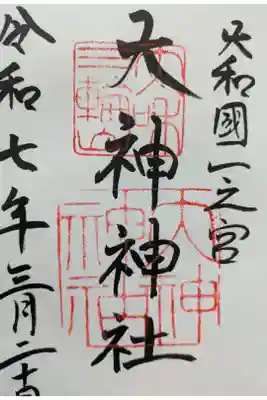 大和國一之宮
大神神社
令和七年三月二十日